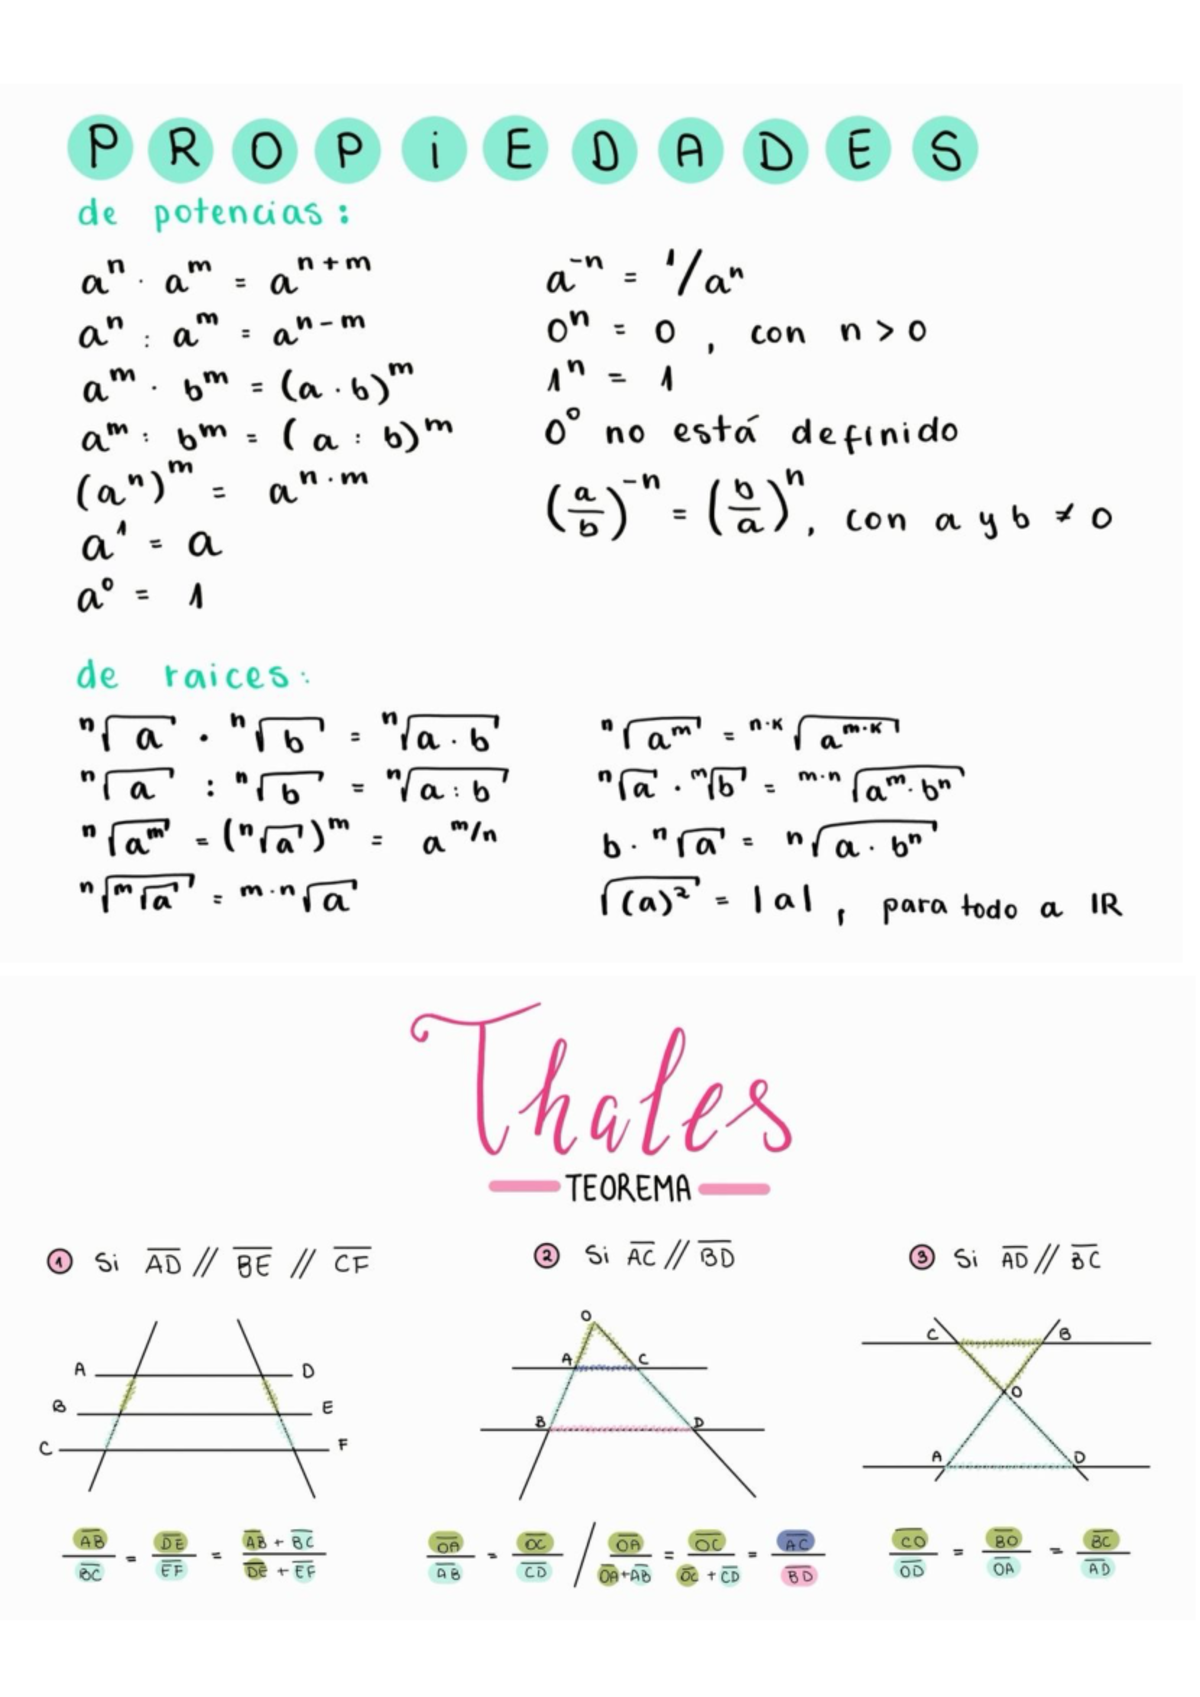 PROPiEDADES
de potencias:
aⁿ · aᵐ = aⁿ⁺ᵐ
aⁿ : aᵐ = aⁿ⁻ᵐ
aᵐ · bᵐ = (a · b)ᵐ
aᵐ : bᵐ = (a : b)ᵐ
(aⁿ)ᵐ = aⁿ·ᵐ
a¹ = a
a⁰ = 1
a⁻ⁿ = 1/aⁿ
0ⁿ = 0, con n > 0
1ⁿ = 1
0⁰ no está definido
(a/b)⁻ⁿ = (b/a)ⁿ, con a y b ≠ 0
de raices:
ⁿ√a · ⁿ√b = ⁿ√(a · b)
ⁿ√a : ⁿ√b = ⁿ√(a : b)
ⁿ√aᵐ = (ⁿ√a)ᵐ = a^(m/n)
ⁿ√ᵐ√a = ᵐ·ⁿ√a
ⁿ√aᵐ = ⁿ·ᴷ√a^(m·K)
ⁿ√a · ᵐ√b = ᵐ·ⁿ√(aᵐ · bⁿ)
b · ⁿ√a = ⁿ√(a · bⁿ)
√(a)² = |a|, para todo a IR
Thales
TEOREMA
1 Si A̅D̅ // B̅E̅ // C̅F̅
A D
B E
C F
A̅B̅/B̅C̅ = D̅E̅/E̅F̅ = (A̅B̅ + B̅C̅)/(D̅E̅ + E̅F̅)
2 Si A̅C̅ // B̅D̅
O
A C
B D
O̅A̅/A̅B̅ = O̅C̅/C̅D̅ / O̅A̅/(O̅A̅+A̅B̅) = O̅C̅/(O̅C̅ + C̅D̅) = A̅C̅/B̅D̅
3 Si A̅D̅ // B̅C̅
C B
O
A D
C̅O̅/O̅D̅ = B̅O̅/O̅A̅ = B̅C̅/A̅D̅